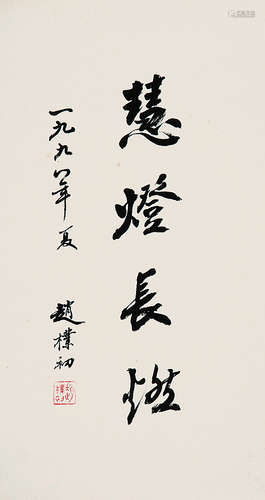 慧燈長燃
一九九八年夏
趙樸初